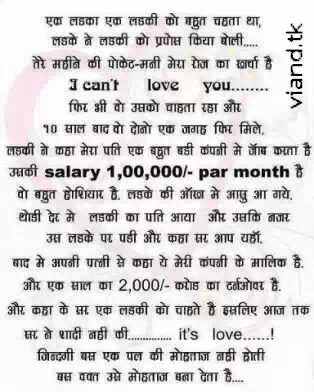 एक लडका एक लडकी को बहुत चहता था,
लडके ने लडकी को प्रपोस किया बोली.....
तेरे महीने की पोकेट-मनी मेरा रोज का खर्चा है
I can't love you........
फिर भी वो उसको चाहता रहा और
10 साल बाद वो दोनो एक जगह फिर मिले.
लडकी ने कहा मेरा पति एक बहुत बडी कंपनी मे जॉब करता है
उसकी salary 1,00,000/- par month है
वो बहुत होशियार है. लडके की ऑख मे आसु आ गये.
थोडी देर मे लडकी का पति आया और उसकि नजर
उस लडके पर पडी और कहा सर आप यहॉ.
बाद मे अपनी पत्नी से कहा ये मेरी कंपनी के मालिक है.
और एक साल का 2,000/- करोड का टर्नओवर है.
और कहा के सर एक लडकी को चाहते है इसलिए आज तक
सर ने शादी नही की.............. it's love......!
जिन्दगी बस एक पल की मोहताज नही होती
बस वक्त उसे मोहताज बना देता है....
viand.tk